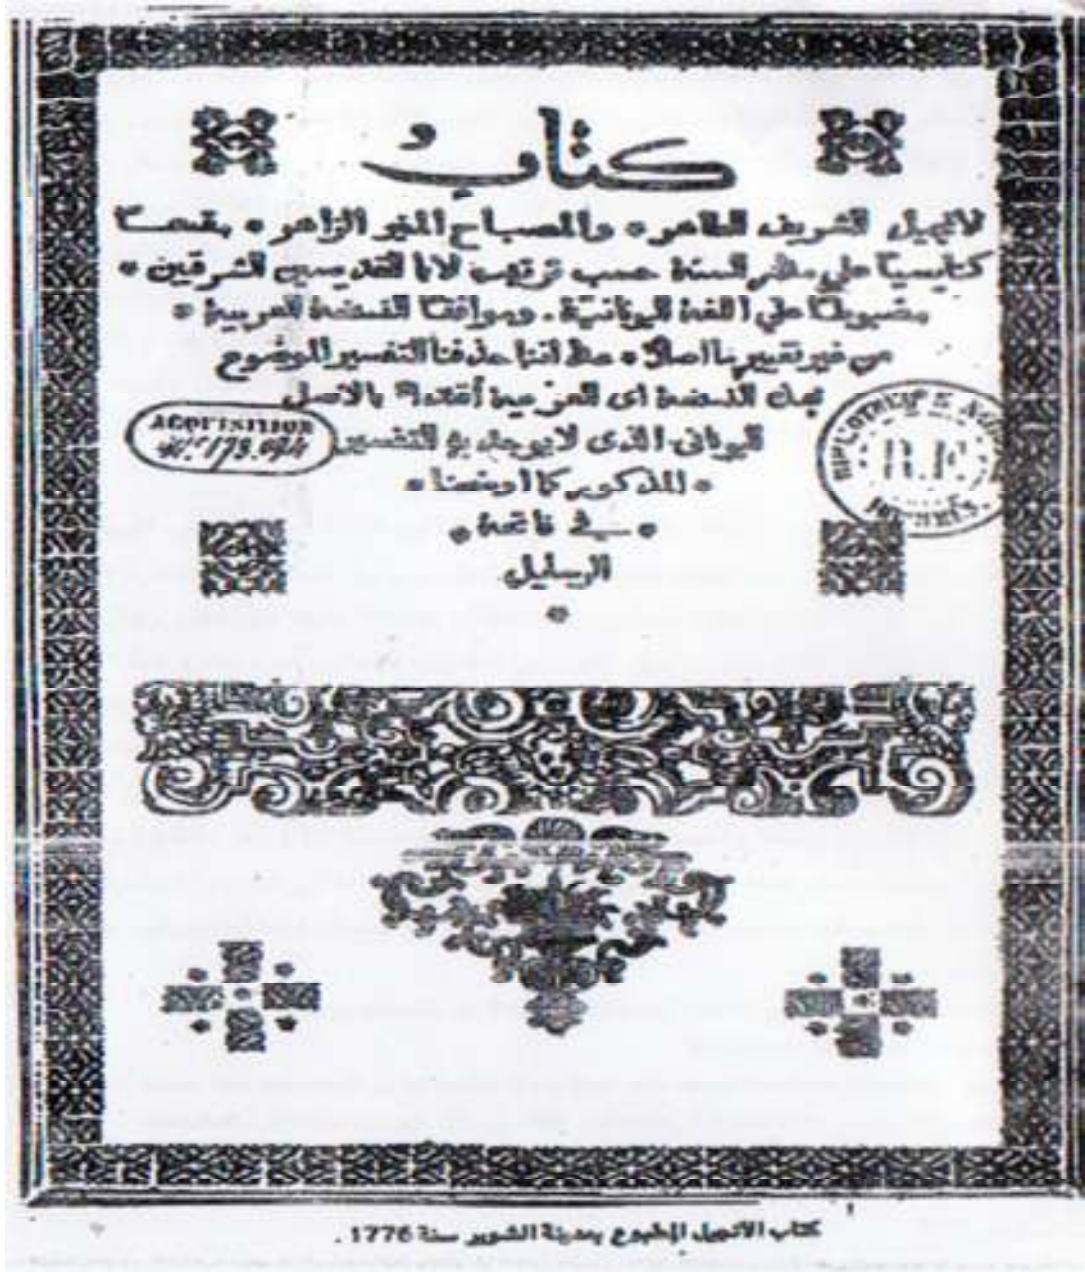 كتاب
الانجيل الشريف الطاهر * والمصباح المنير الزاهر * بقسمـــا
كنايسيا على مدار السنة حسب ترتيب الابا القديسين الشرقيين *
مضبوطا على اللغة اليونانية . وموافقا النسخة العربية *
من غير تغيير بها اصلا * عدا اننا حذفنا التفسير الموضوع
النسخة اى العربية اقتداء بالاصل
اليونانى الذى لا يوجد به التفسير
* المذكور كما اوضحنا *
* فى خاتمة *
ACQUISITION
كتاب الانجيل المطبوع بمدينة الشوير سنة 1776 .